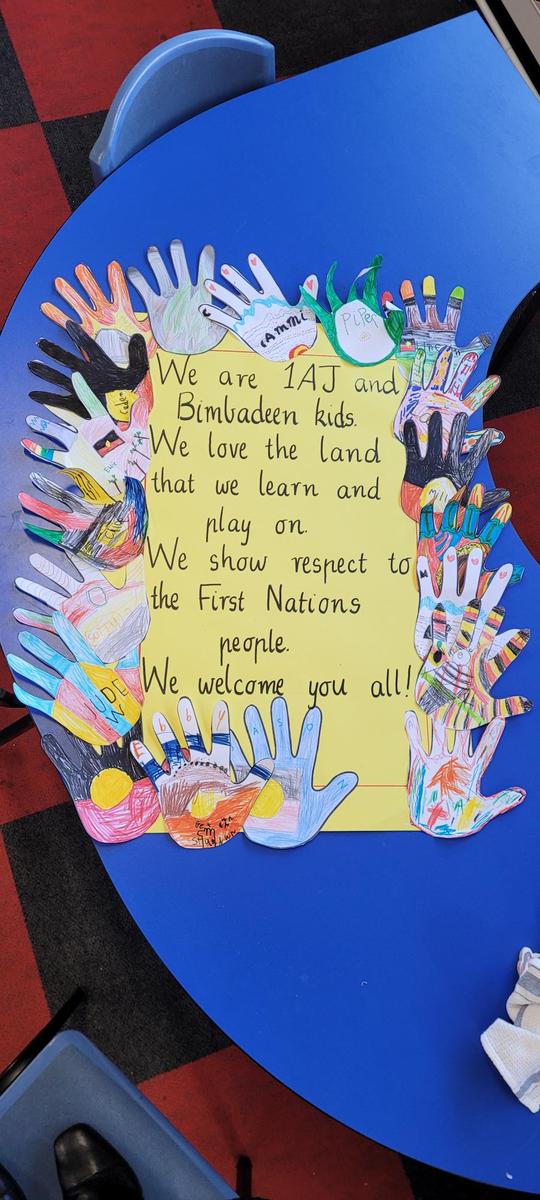 cAMMi
PiPer
We are 1AJ and
Bimbadeen kids.
We love the land
that we learn and
play on.
We show respect to
the First Nations
people.
We welcome you all!